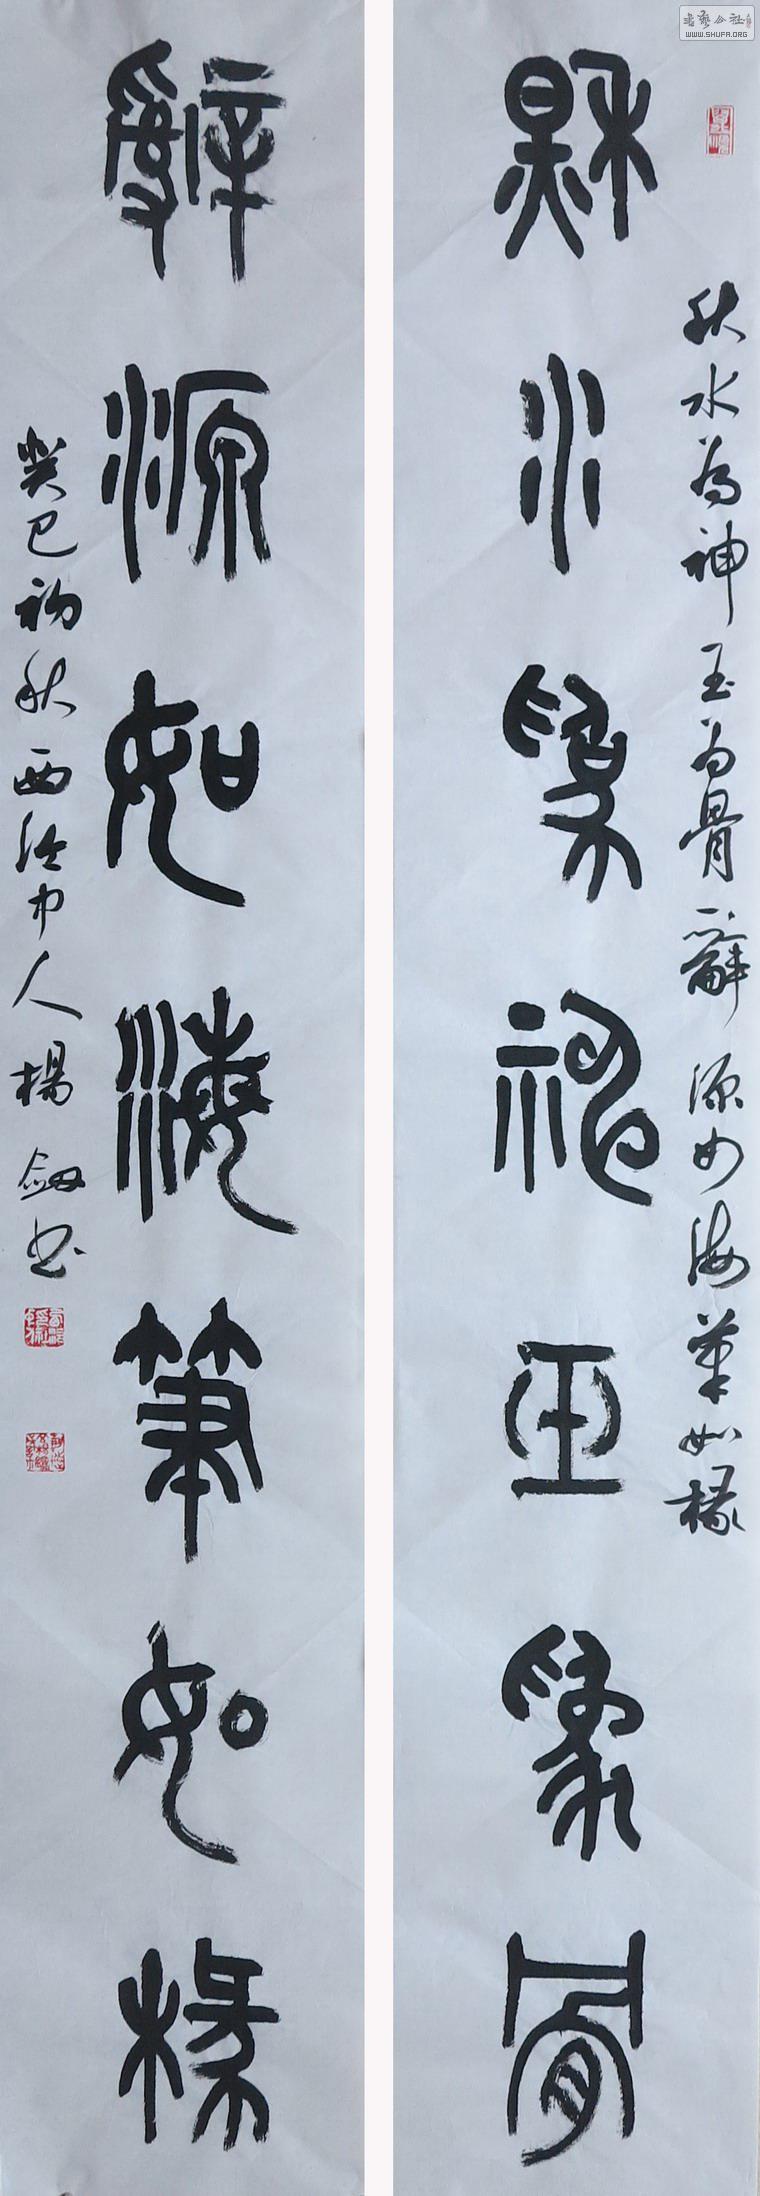 秋水為神玉為骨
秋水為神玉為骨辭源如海筆如椽
辭源如海筆如椽
癸巳初秋西泠中人楊劍書
WWW.SHUFA.ORG